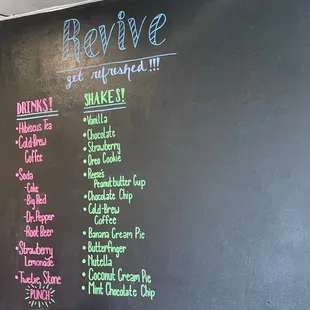 Revive
get refreshed!!!
DRINKS!
•Hibiscus Tea
•Cold-Brew
Coffee
•Soda
-Coke
-Big Red
-Dr. Pepper
-Root Beer
•Strawberry
Lemonade
•Twelve Stone
PUNCH
SHAKES!
•Vanilla
•Chocolate
•Strawberry
•Oreo Cookie
•Reese's
Peanutbutter Cup
•Chocolate Chip
•Cold-Brew
Coffee
•Banana Cream Pie
•Butterfinger
•Nutella
•Coconut Cream Pie
•Mint Chocolate Chip